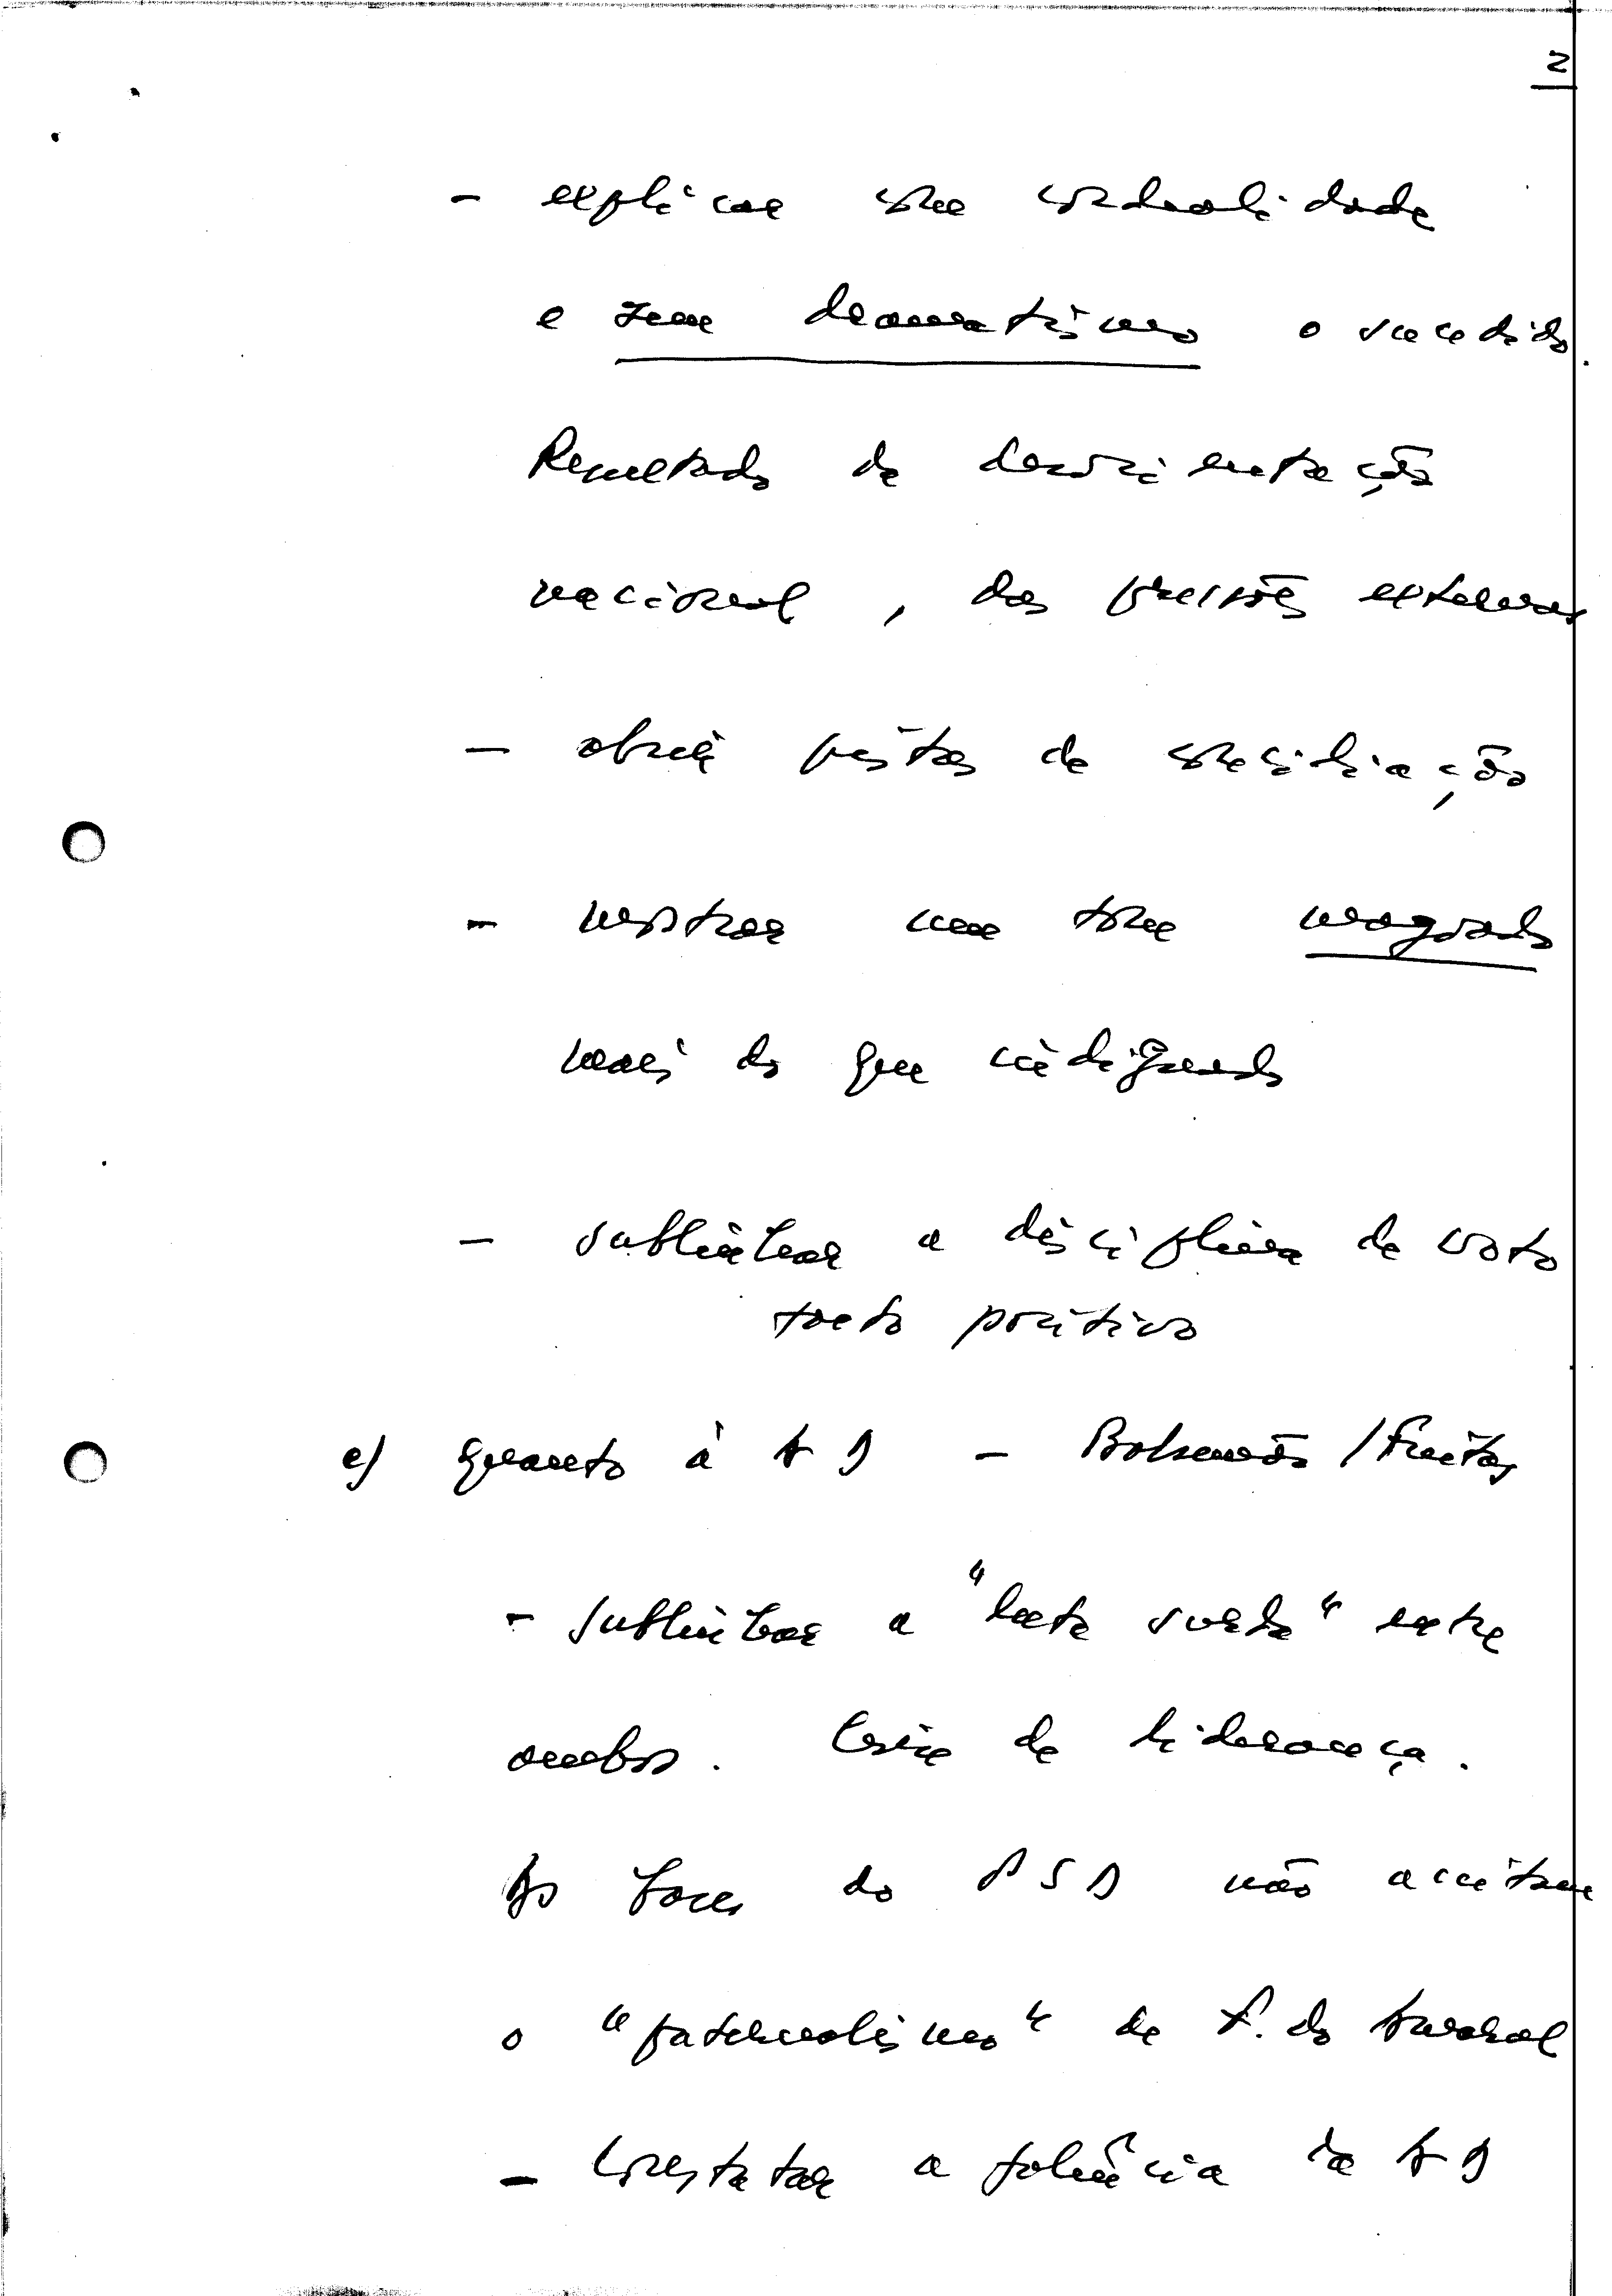 2
- explicar com cordealidade
e sem dramatismo o sucedido.
Resultado da desorientação
nacional, das pressões externas
- abrir pistas de conciliação
- mostrar um tom magoado
mais do que indignado
- sublinhar a disciplina de voto
facto positivo
e) quanto à AD - Balsemão / Freitas
- sublinhar a "luta surda" entre
ambos. Crise de liderança.
As bases do PSD não aceitam
o "paternalismo" de F. do Amaral
- Constatar a falência da AD